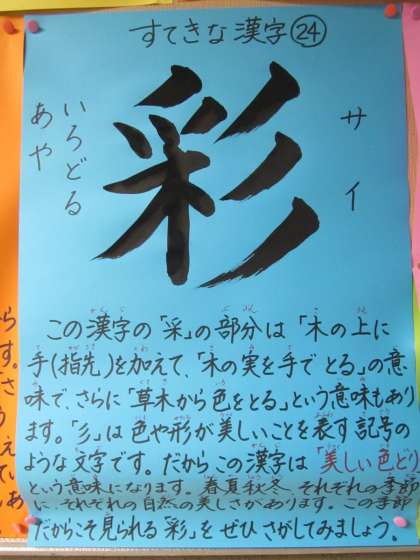 すてきな漢字㉔
彩
サイ
いろどる
あや
この漢字の「采」の部分は「木の上に
手(指先)を加えて、「木の実を手でとる」の意
味で、さらに「草木から色をとる」という意味もあり
ます。「彡」は色や形が美しいことを表す記号の
ような文字です。だからこの漢字は「美しい色どり
という意味になります。春夏秋冬、それぞれの季節
に、それぞれの自然の美しさがあります。この季節
だからこそ見られる「彩」をぜひさがしてみましょう。